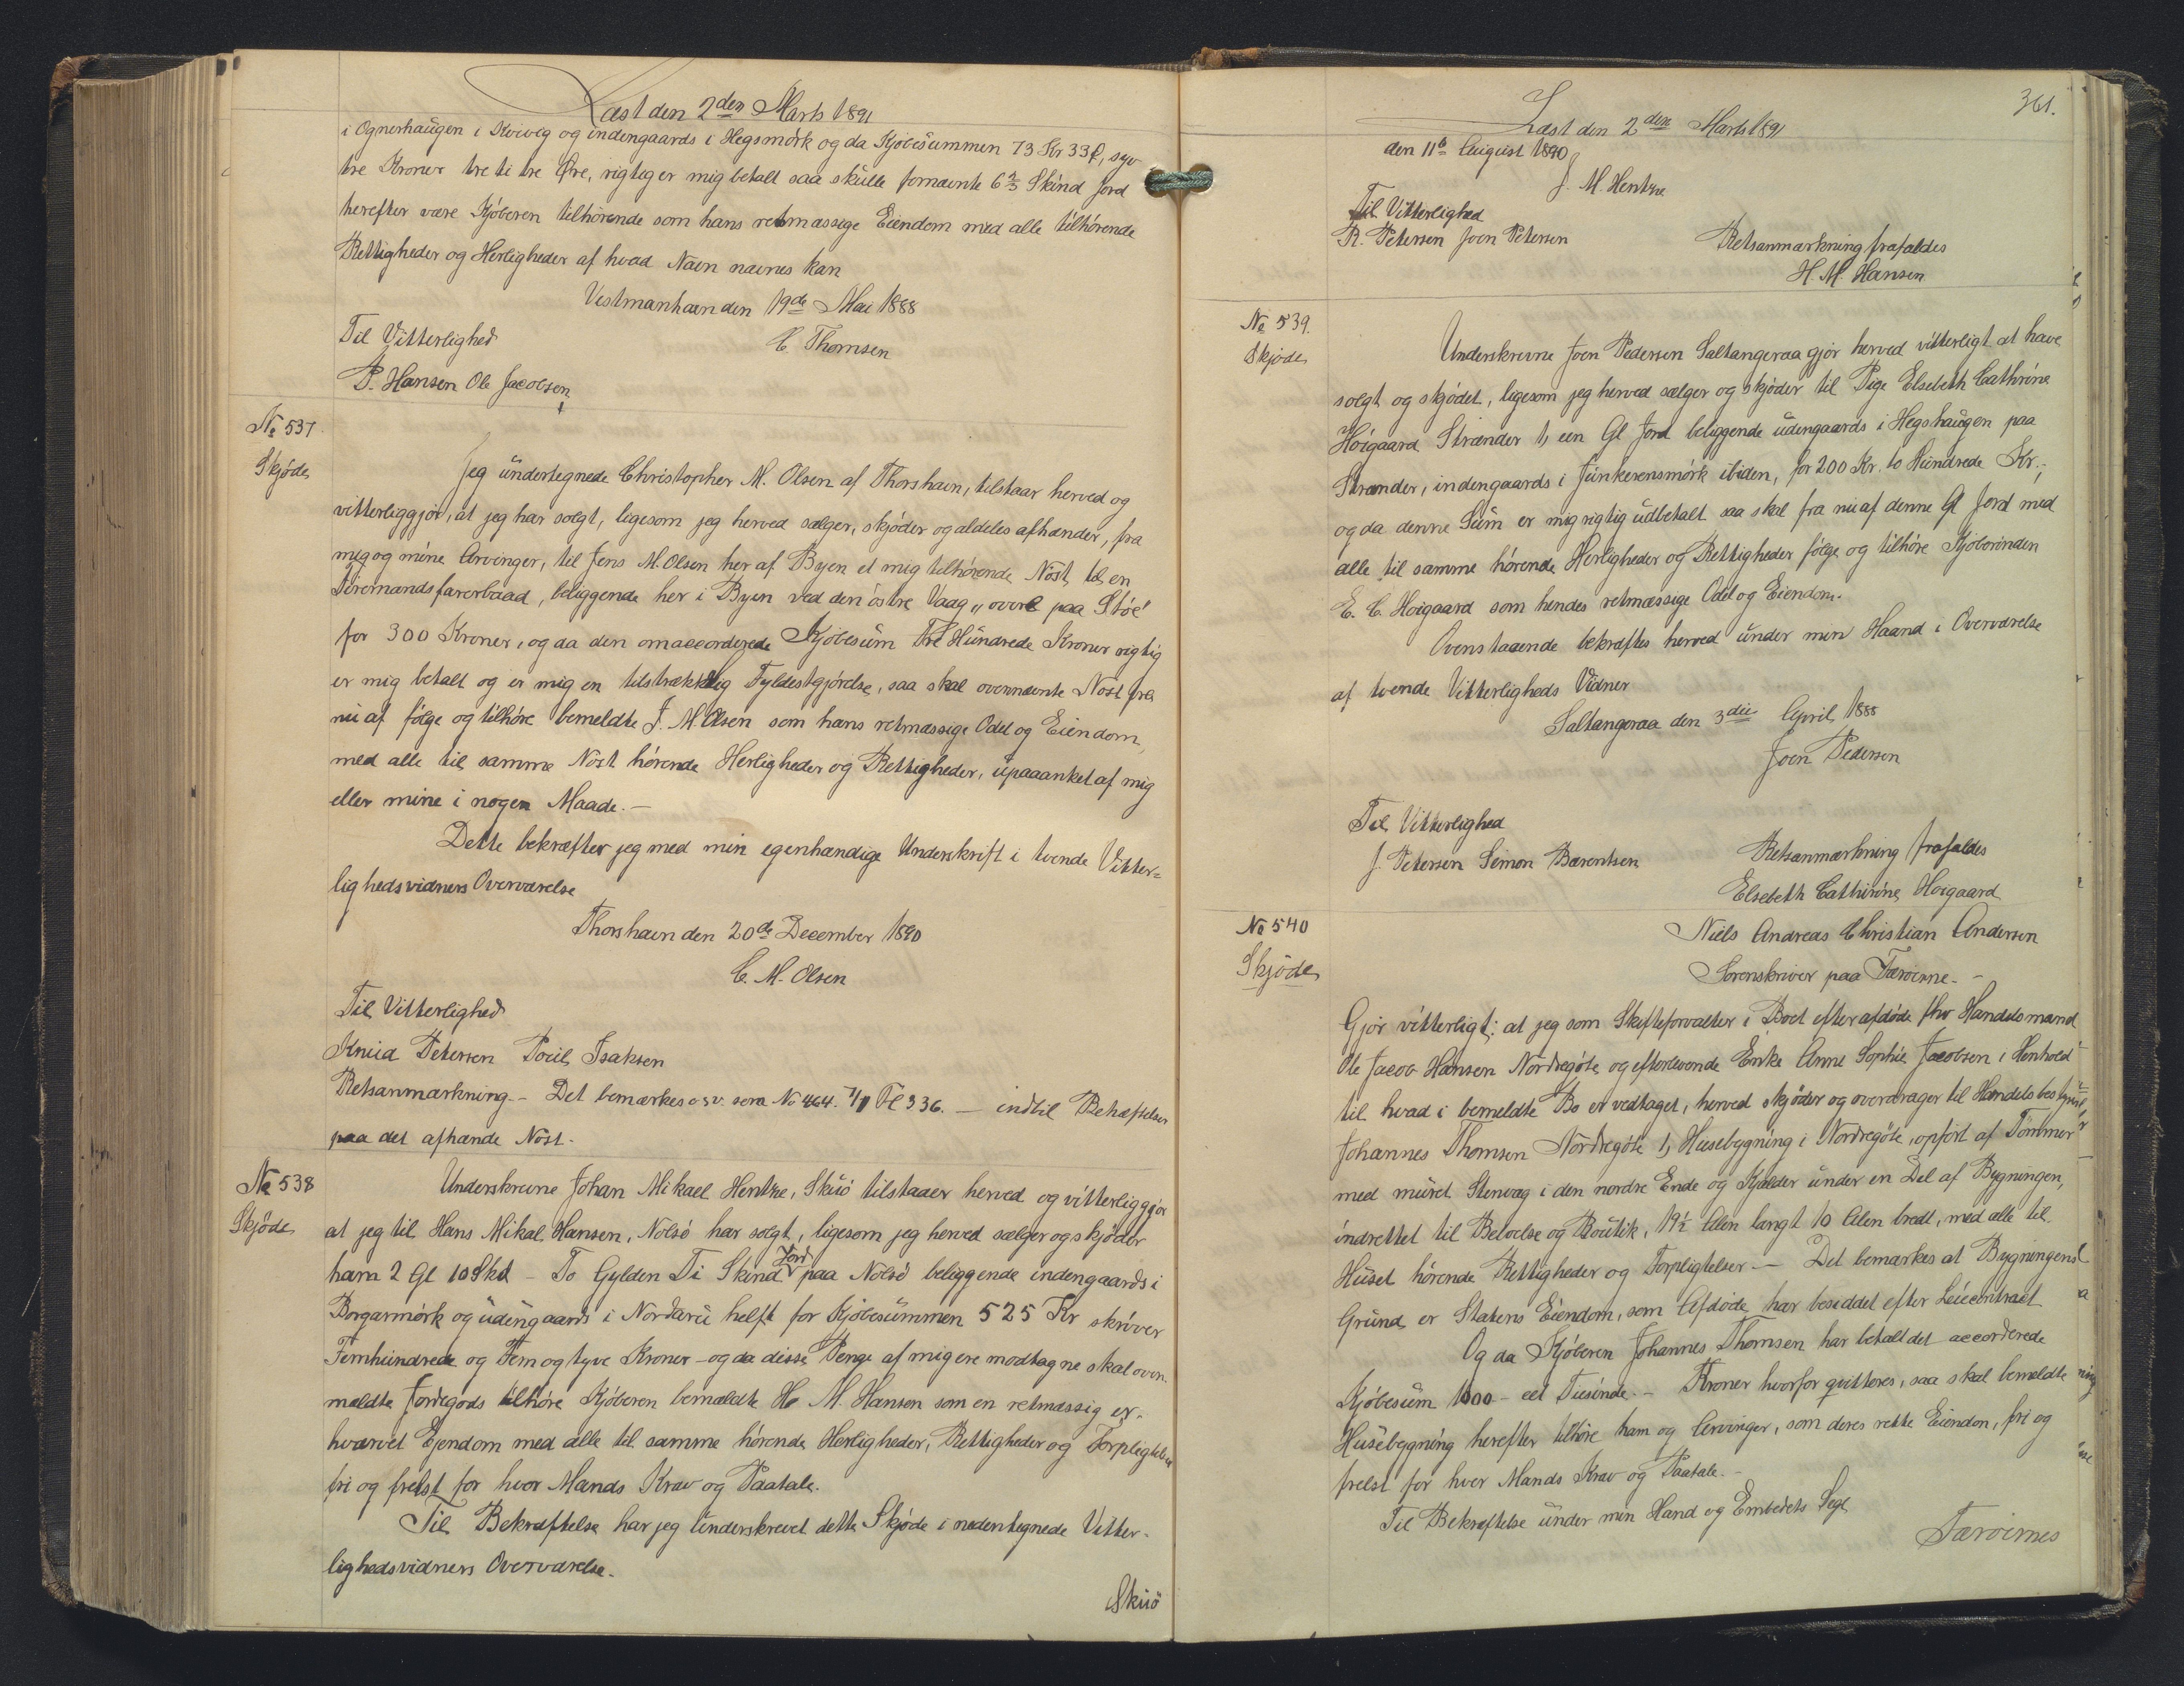 Læst den 2den Marts 1891
i Ognerhaugen i Kvivig og indengaards i Hegsmørk og da Kjøbesummen 73 Kr 33 Ø, syv
tre Kroner tre ti tre Øre, rigtig er mig betalt saa skulle fornævnte 6 2/3 Skind Jord
herefter være Kjøberen tilhørende som hans retmæssige Eiendom med alle tilhørende
Rettigheder og Herligheder af hvad Navn nævnes kan
Vestmanhavn den 19de Mai 1888
Til Vitterlighed
C. Thomsen
P. Hansen Ole Jacobsen
No 537
Skjøde
Jeg undertegnede Christopher M. Olsen af Thorshavn, tilstaar herved og
vitterliggjør, at jeg har solgt, ligesom jeg herved sælger, skjøder og aldeles afhænder, fra
mig og mine Arvinger, til Jens M. Olsen her af Byen et mig tilhørende Nøst, til en
Tiremandsfarerbaad, beliggende her i Byen ved den østre Vaag „overe paa Støe"
for 300 Kroner, og da den omaccorderede Kjøbesum Tre Hundrede Kroner rigtig
er mig betalt og er mig en tilstrækkelig Fyldestgjørelse, saa skal ovennævnte Nøst fra
nu af følge og tilhøre bemeldte J. M. Olsen som hans retmæssige Odel og Eiendom,
med alle til samme Nøst hørende Herligheder og Rettigheder, upaaanket af mig
eller mine i nogen Maade. —
Dette bekræfter jeg med min egenhændige Underskrift i tvende Vitter=
lighedsvidners Overværelse
Thorshavn den 20de December 1890
C. M. Olsen
Til Vitterlighed
Knud Petersen Poul Isaksen
Retsanmærkning. - Det bemærkes osv. som No 464. 7/11 Fol 336. — indtil Behæftelser
paa det afhænde Nøst -
No 538
Skjøde
Underskrevne Johan Mikael Hentze, Skuø tilstaaer herved og vitterliggjør
at jeg til Hans Mikal Hansen, Nolsø har solgt, ligesom jeg herved sælger og skjøder
ham 2 Gl 10 Skd - To Gylden Ti Skind Jord paa Nolsø beliggende indengaards i
Borgarmørk og udengaards i Norderu helft for Kjøbesummen 525 Kr skriver
Femhundrede og Fem og tyve Kroner - og da disse Penge af mig ere modtagne skal oven-
meldte Jordegods tilhøre Kjøberen bemældte H. M. Hansen som en retmæssig er-
hværvet Ejendom med alle til samme hørende Herligheder, Rettigheder og Forpligtelser
fri og frelst for hver Mands Krav og Paatale.
Til Bekræftelse har jeg underskrevet dette Skjøde i nedentegnede Vitter-
lighedsvidners Overværelse.
Skuø
361.
Læst den 2den Marts 1891
den 11te August 1890
J. M. Hentze
Til Vitterlighed
R. Petersen Joen Petersen
Retsanmærkning frafaldes
H. M. Hansen
No 539.
Skjøde
Underskrevne Joen Pedersen Saltangeraa gjør herved vitterligt at have
solgt og skjødet, ligesom jeg herved sælger og skjøder til Pige Elsebeth Cathrine
Høigaard Strænder 1, een Gl Jord beliggende udengaards i Hegshaugen paa
Strænder, indengaards i Junkerensmørk ibiden, for 200 Kr. to Hundrede Kr.;
og da denne Sum er mig rigtig udbetalt saa skal fra nu af denne Gl Jord med
alle til samme hørende Herligheder og Rettigheder følge og tilhøre Kjøberinden
E. C. Høigaard som hendes retmæssige Odel og Eiendom.
Ovenstaaende bekræftes herved under min Haand i Overværelse
af tvende Vitterligheds Vidner
Saltangeraa den 3die April 1888
Joen Pedersen
Til Vitterlighed
J. Petersen Simon Bærentsen
Retsanmærkning frafaldes
Elsebeth Cathrine Høigaard
No 540
Skjøde
Niels Andreas Christian Andersen
Sorenskriver paa Færøerne. -
Gjør vitterligt; at jeg som Skifteforvalter i Boet efter afdøde fhv Handelsmand
Ole Jacob Hansen Nordregøte og efterlevende Enke Anne Sophie Jacobsen i Henhold
til hvad i bemeldte Bo er vedtaget, herved skjøder og overdrager til Handelsbestyrer
Johannes Thomsen Nordregøte 1, Husebygning i Nordregøte, opført af Tømmer
med muret Stenvæg i den nordre Ende og Kjælder under en Del af Bygningen,
indrettet til Beboelse og Boutik, 19½ Alen langt 10 Alen bredt, med alle til
Huset hørende Rettigheder og Forpligtelser — Det bemærkes at Bygningens
Grund er Statens Eiendom, som Afdøde har besiddet efter Leiecontract
Og da Kjøberen Johannes Thomsen har betalt det accorderede
Kjøbesum 1000 - eet Tusinde. - Kroner hvorfor qvitteres, saa skal bemeldte
Husebygning herefter tilhøre ham og Arvinger, som deres rette Eiendom, fri og
frelst for hver Mands Krav og Paatale. -
Til Bekræftelse under min Hand og Embedets Segl
Færøernes